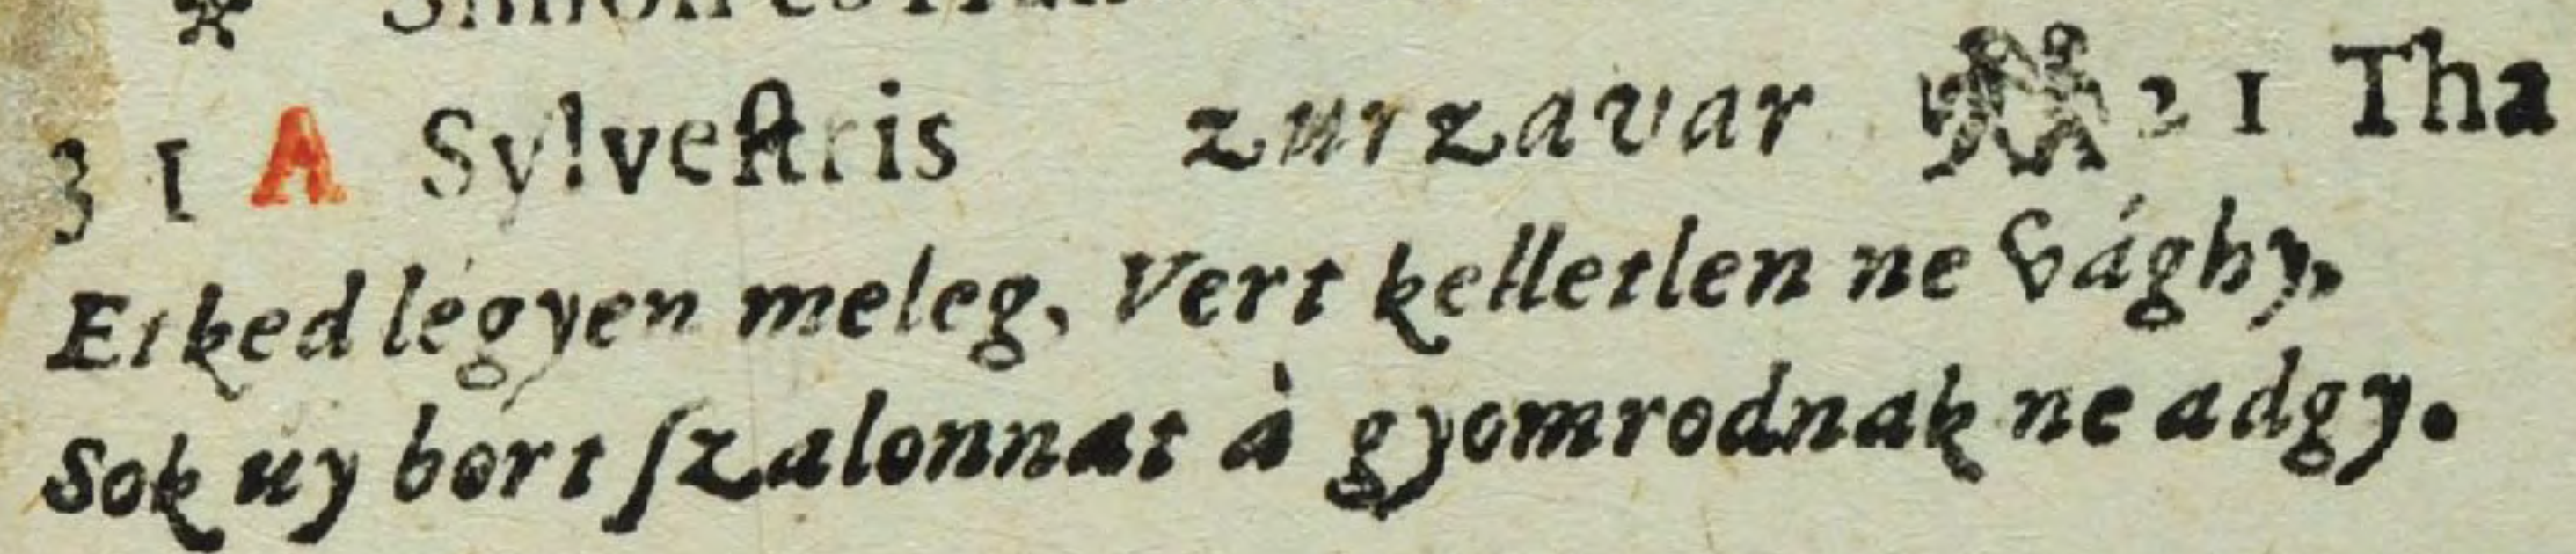 31 A Sylvestris zurzavar 21 Tha
Etked légyen meleg, Vert kelletlen ne vághy,
Sok uy bort ſzalonnat à gyomrodnak ne adgy.